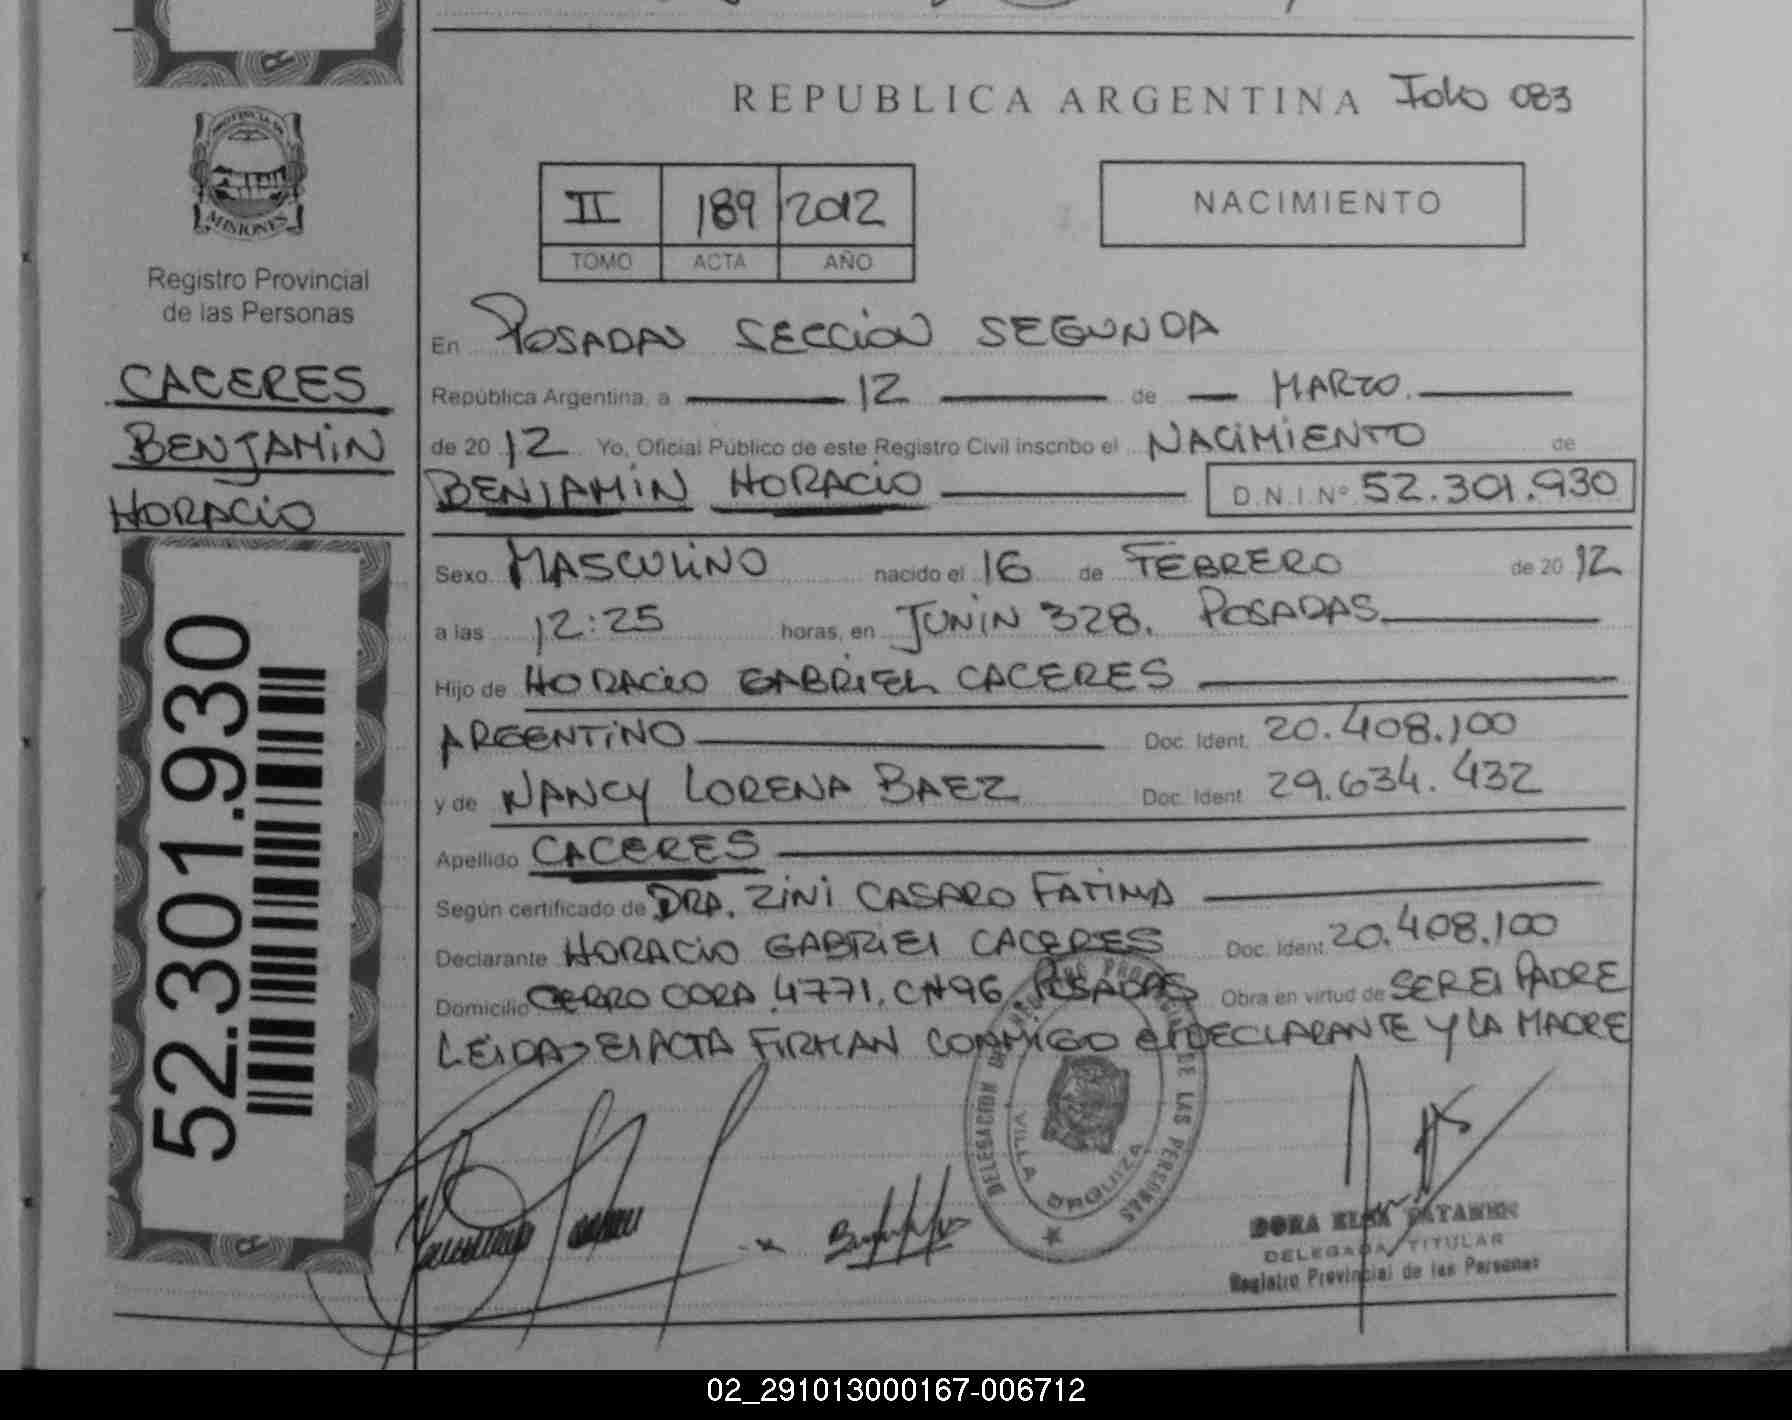 REPUBLICA ARGENTINA Folio 083
II 189 2012
TOMO ACTA AÑO
NACIMIENTO
PROVINCIA DE
MISIONES
Registro Provincial
de las Personas
CACERES
BENJAMIN
HORACIO
52.301.930
En POSADAS SECCION SEGUNDA
República Argentina, a 12 de MARZO.
de 2012 Yo, Oficial Público de este Registro Civil inscribo el NACIMIENTO de
BENJAMIN HORACIO D.N.I.Nº 52.301.930
Sexo MASCULINO nacido el 16 de FEBRERO de 2012
a las 12:25 horas, en JUNIN 328. POSADAS
Hijo de HORACIO GABRIEL CACERES
ARGENTINO Doc. Ident. 20.408.100
y de NANCY LORENA BAEZ Doc. Ident. 29.634.432
Apellido CACERES
Según certificado de DRA. ZINI CASARO FATIMA
Declarante HORACIO GABRIEL CACERES Doc. Ident. 20.408.100
Domicilio CERRO CORA 4771, CH96 POSADAS Obra en virtud de SER El PADRE
LEIDA El ACTA FIRMAN CONMIGO El DECLARANTE Y LA MADRE
DELEGACION DEL REGISTRO PROVINCIAL DE LAS PERSONAS
VILLA URQUIZA
DORA ELSA
DELEGADA TITULAR
Registro Provincial de las Personas
02_291013000167-006712